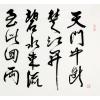 天門中斷
楚江開
碧水東流
至此回兩